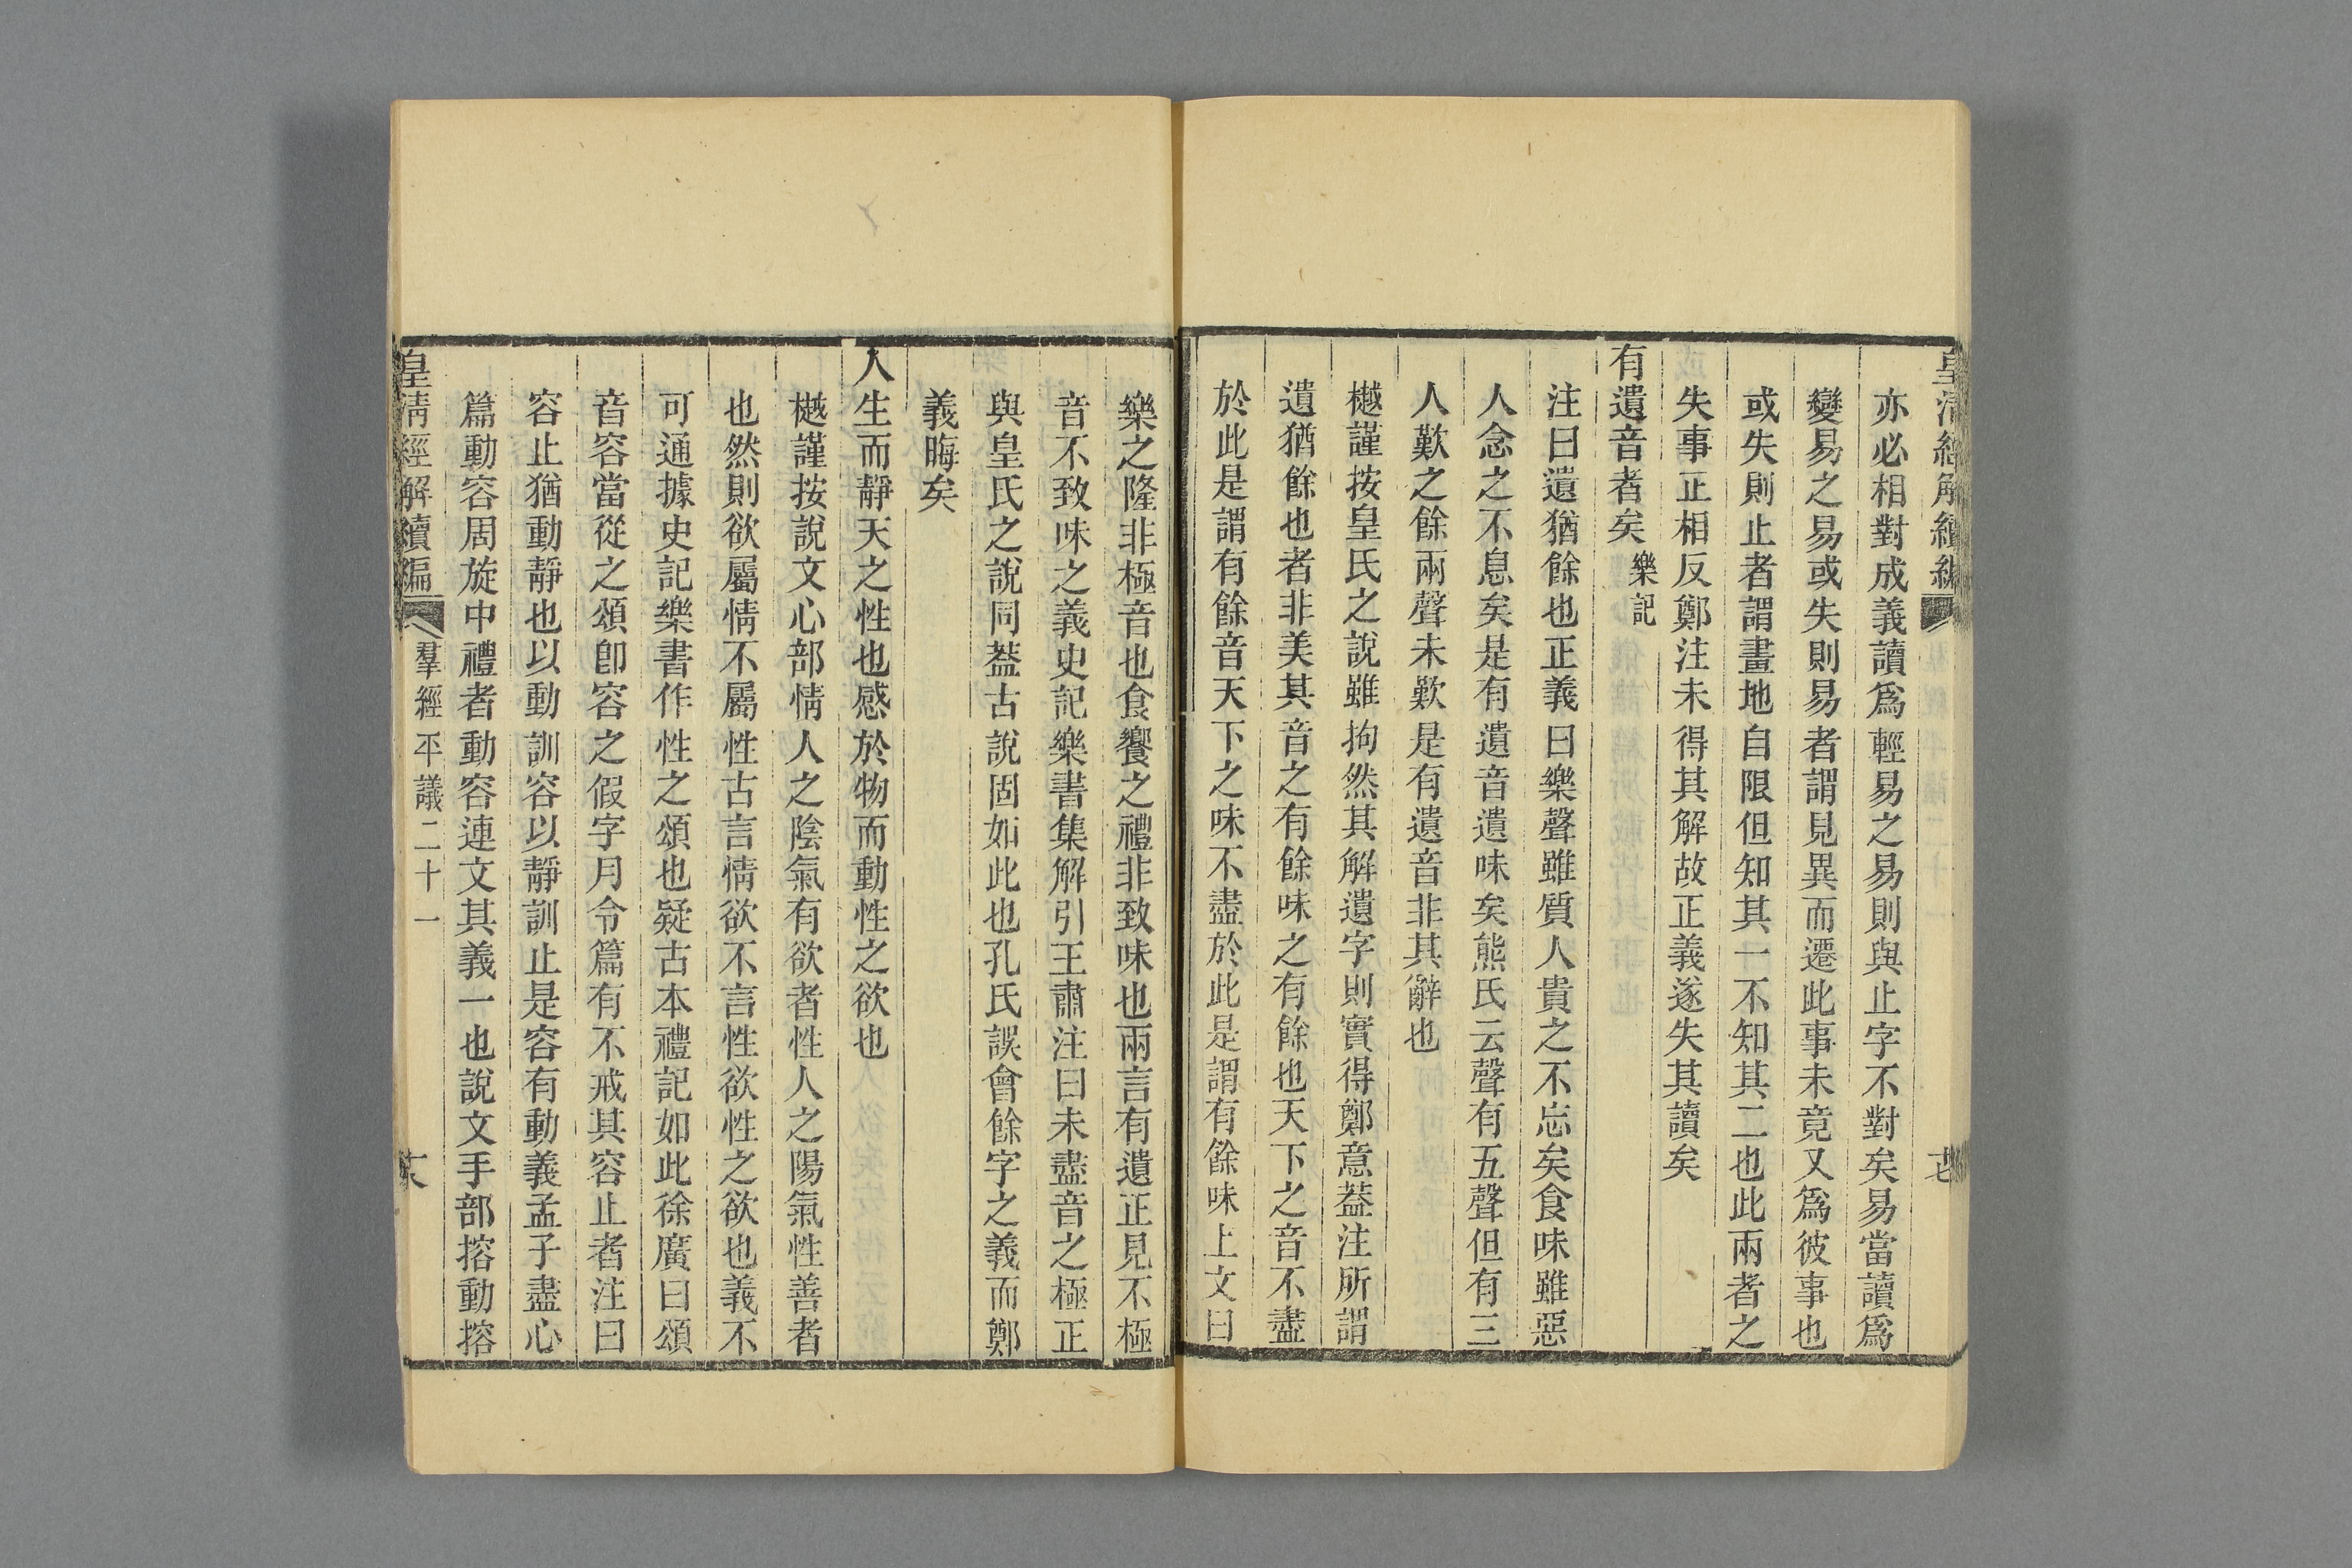 皇清經解續編
亦必相對成義讀爲輕易之易則與止字不對矣易當讀爲
變易之易或失則易者謂見異而遷此事未竟又爲彼事也
或失則止者謂畫地自限但知其一不知其二也此兩者之
失事正相反鄭注未得其解故正義遂失其讀矣
有遺音者矣樂記
注曰遺猶餘也正義曰樂聲雖質人貴之不忘矣食味雖惡
人念之不息矣是有遺音遺味矣熊氏云聲有五聲但有三
人歎之餘兩聲未歎是有遺音非其辭也
樾謹按皇氏之說雖拘然其解遺字則實得鄭意葢注所謂
遺猶餘也者非美其音之有餘味之有餘也天下之音不盡
於此是謂有餘音天下之味不盡於此是謂有餘味上文曰
樂之隆非極音也食饗之禮非致味也兩言有遺正見不極
音不致味之義史記樂書集解引王肅注曰未盡音之極正
與皇氏之說同葢古說固如此也孔氏誤會餘字之義而鄭
義晦矣
人生而靜天之性也感於物而動性之欲也
樾謹按說文心部情人之陰氣有欲者性人之陽氣性善者
也然則欲屬情不屬性古言情欲不言性欲性之欲也義不
可通據史記樂書作性之頌也疑古本禮記如此徐廣曰頌
音容當從之頌卽容之假字月令篇有不戒其容止者注曰
容止猶動靜也以動訓容以靜訓止是容有動義孟子盡心
篇動容周旋中禮者動容連文其義一也說文手部搈動搈
皇清經解續編 羣經平議二十一